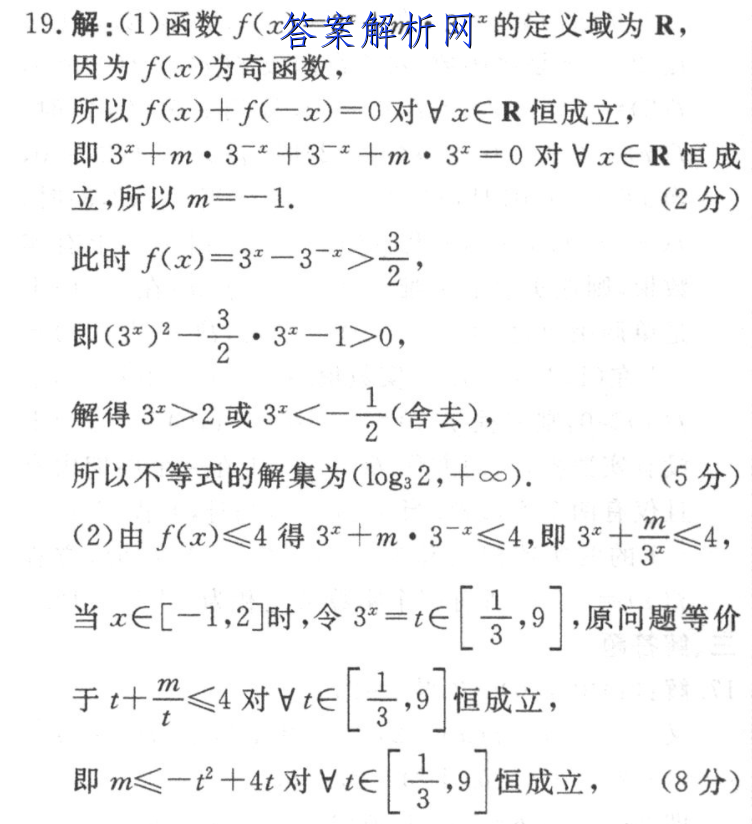 19. 解:(1)函数 f(x)=3ˣ+m·3⁻ˣ的定义域为 R,
答案解析网
因为 f(x)为奇函数,
所以 f(x)+f(-x)=0 对 ∀x∈R 恒成立,
即 3ˣ+m·3⁻ˣ+3⁻ˣ+m·3ˣ=0 对 ∀x∈R 恒成
立,所以 m=-1. (2 分)
此时 f(x)=3ˣ-3⁻ˣ>3/2,
即(3ˣ)²-3/2·3ˣ-1>0,
解得 3ˣ>2 或 3ˣ<-1/2(舍去),
所以不等式的解集为(log₃2,+∞). (5 分)
(2)由 f(x)≤4 得 3ˣ+m·3⁻ˣ≤4,即 3ˣ+m/3ˣ≤4,
当 x∈[-1,2]时,令 3ˣ=t∈[1/3,9],原问题等价
于 t+m/t≤4 对 ∀t∈[1/3,9]恒成立,
即 m≤-t²+4t 对 ∀t∈[1/3,9]恒成立, (8 分)